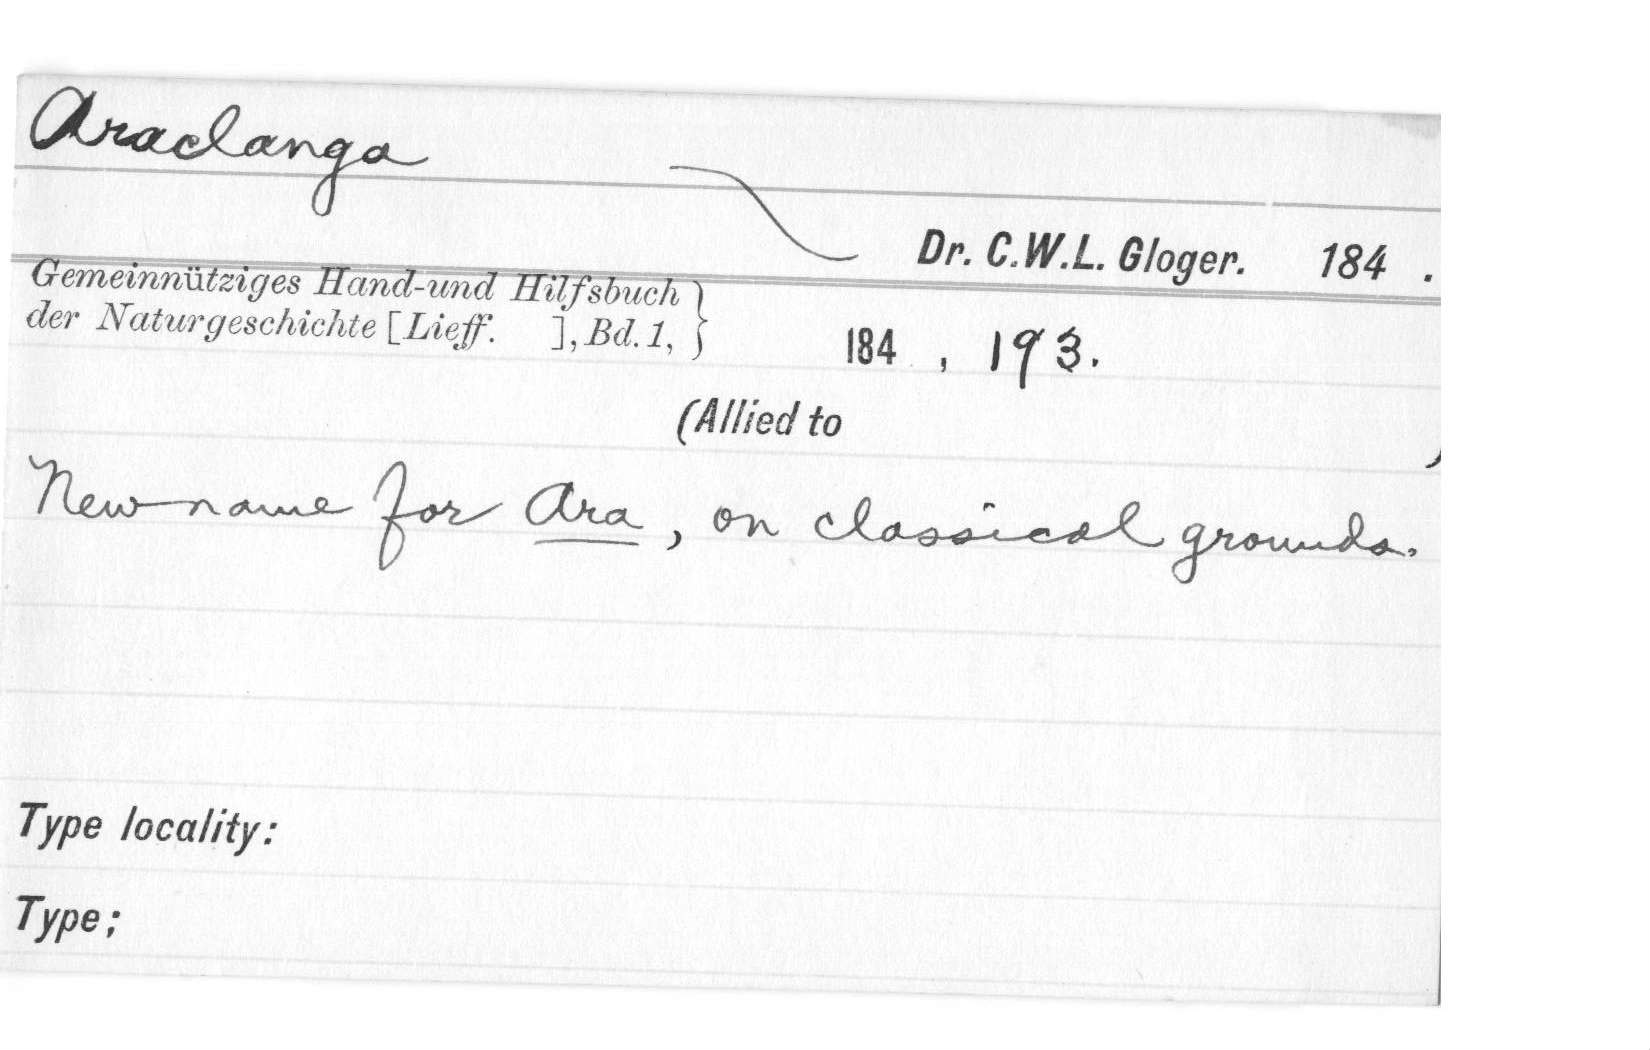 Araclanga
Dr. C.W.L. Gloger. 184 .
Gemeinnütziges Hand-und Hilfsbuch
der Naturgeschichte [Lieff. ], Bd. 1, } 184 , 193.
(Allied to )
New name for Ara, on classical grounds.
Type locality:
Type;